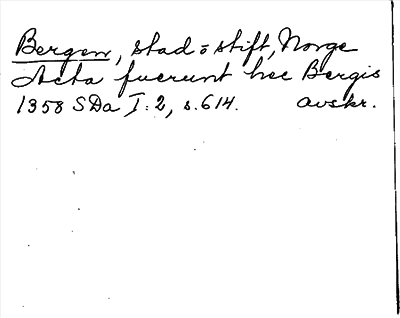 Bergen, stad o stift, Norge
Acta fuerunt hec Bergis
1358 SDa I:2, s.614. avskr.